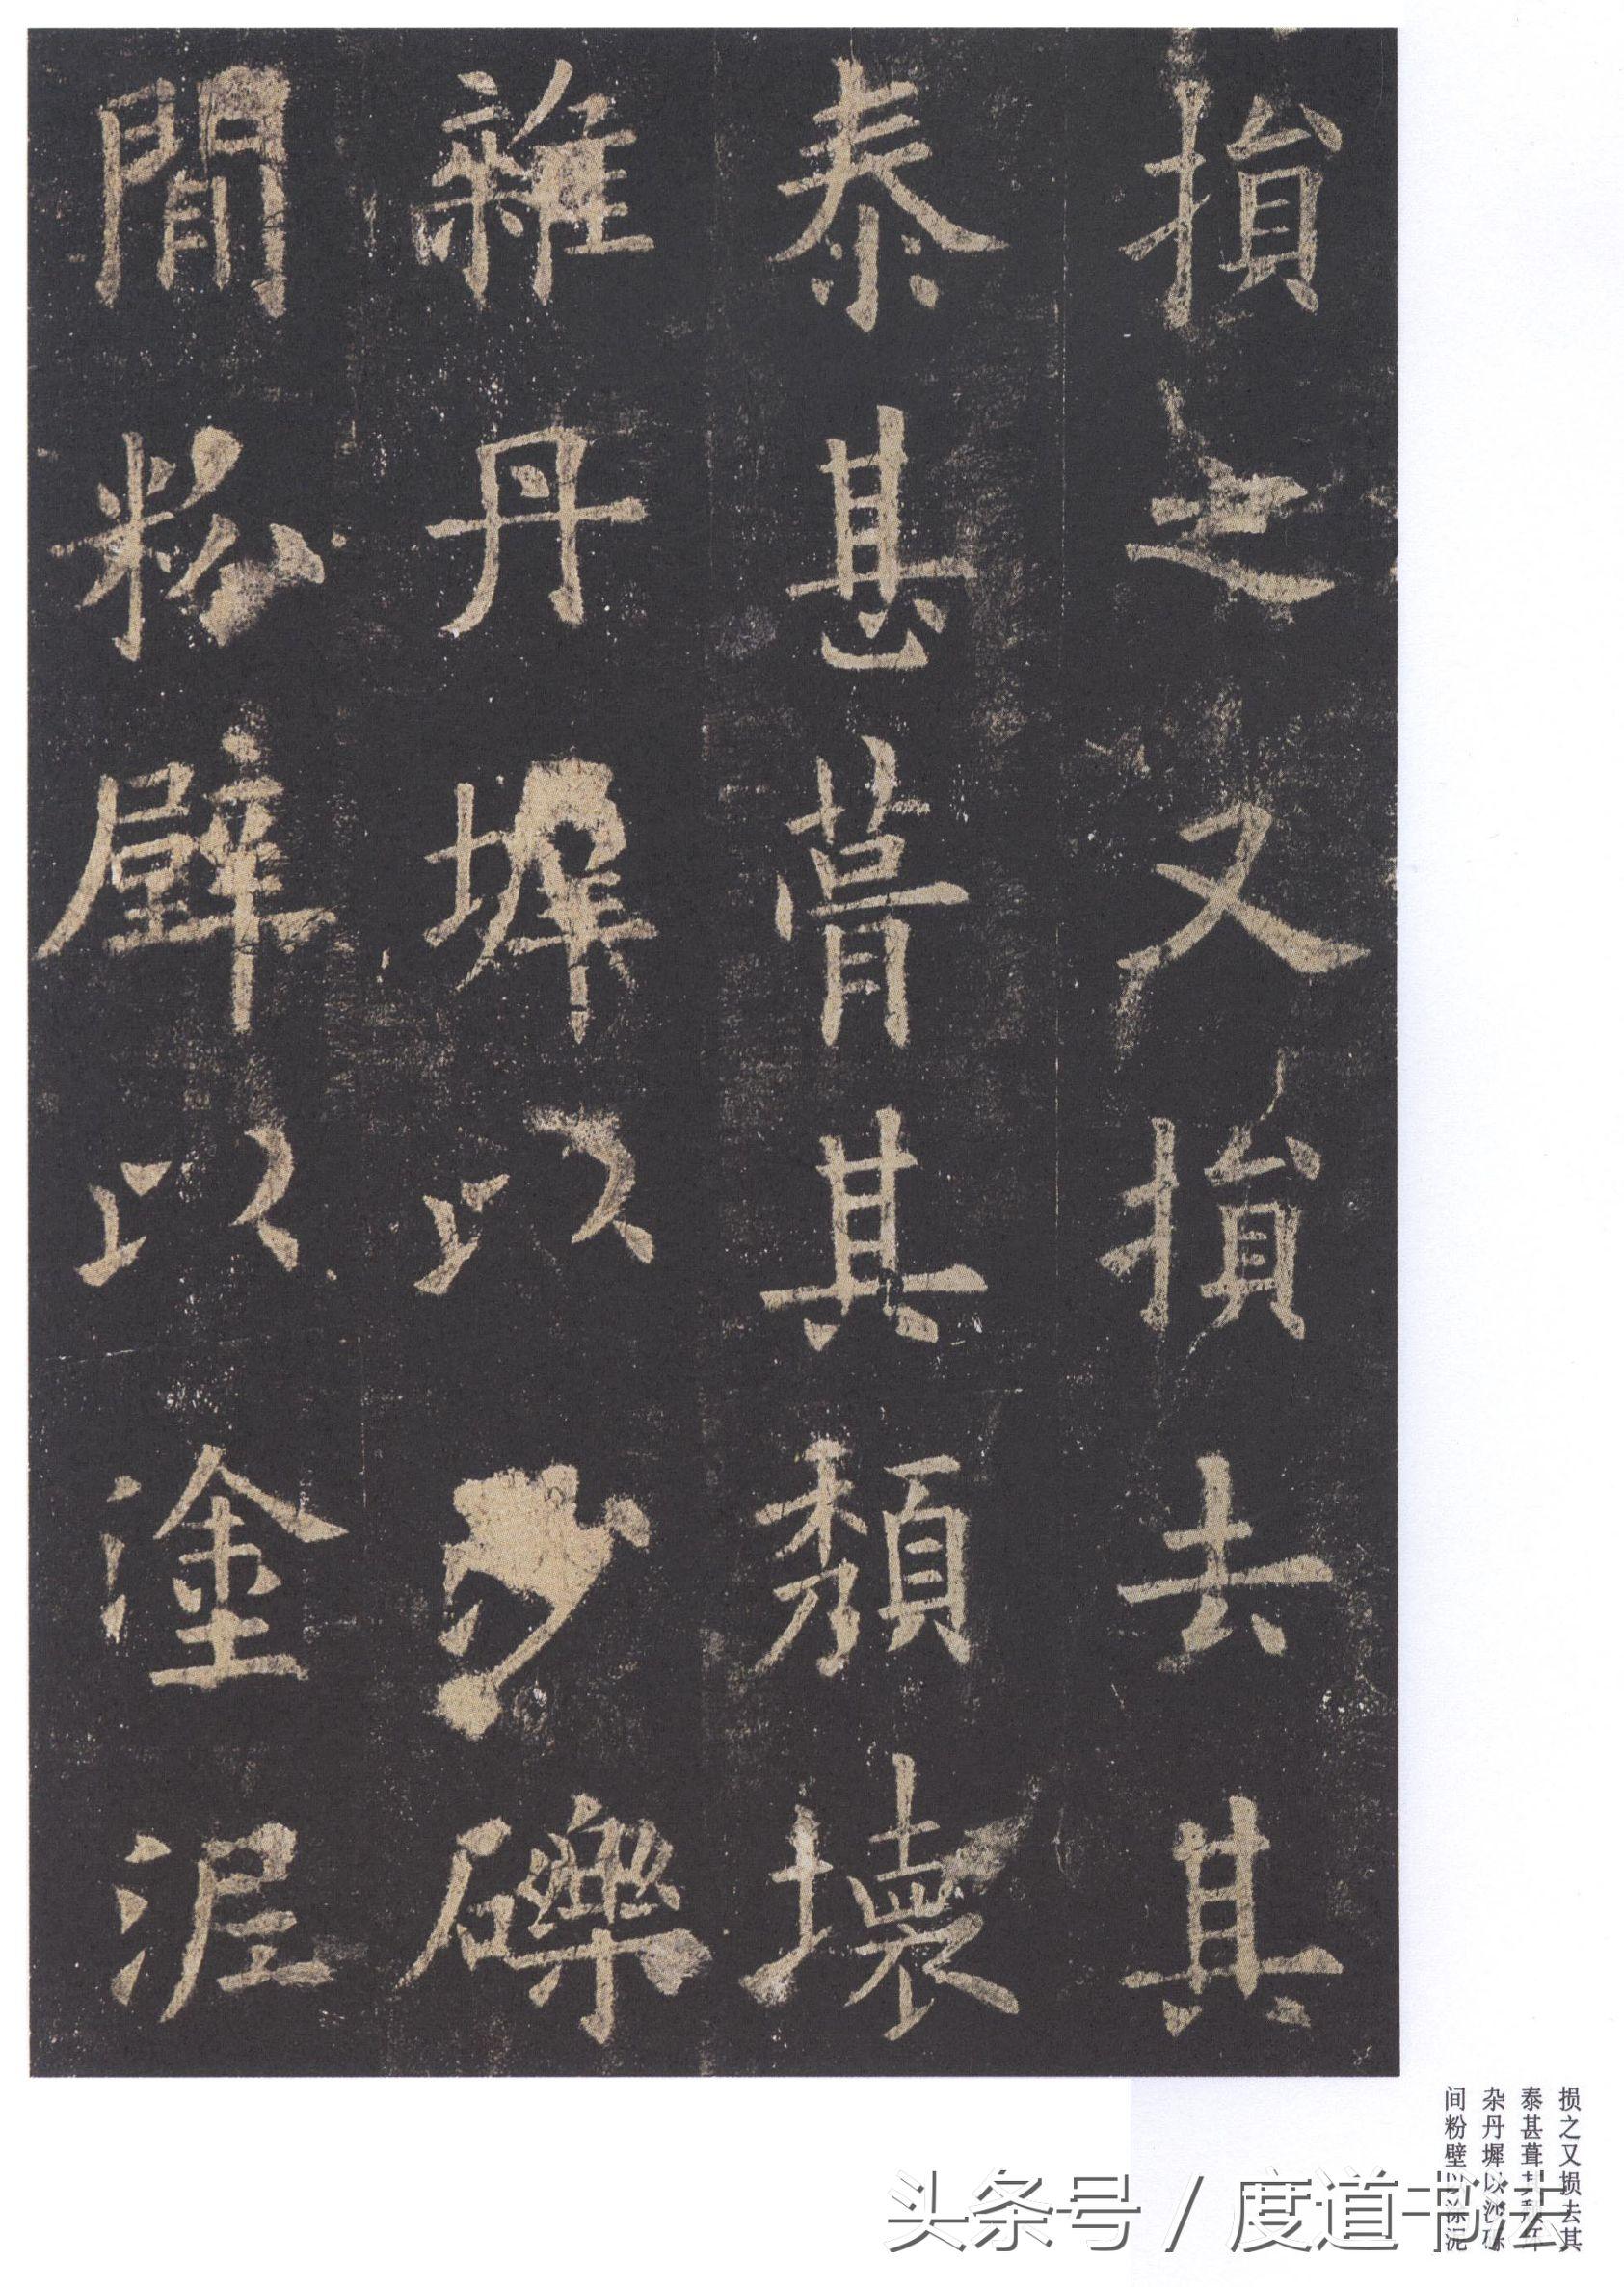 損之又損去其
泰甚葺其頹壞
雜丹墀以沙礫
間粉壁以塗泥
损之又损去其
泰甚葺其
杂丹墀以沙砾
间粉壁以涂泥
头条号 / 度道书法